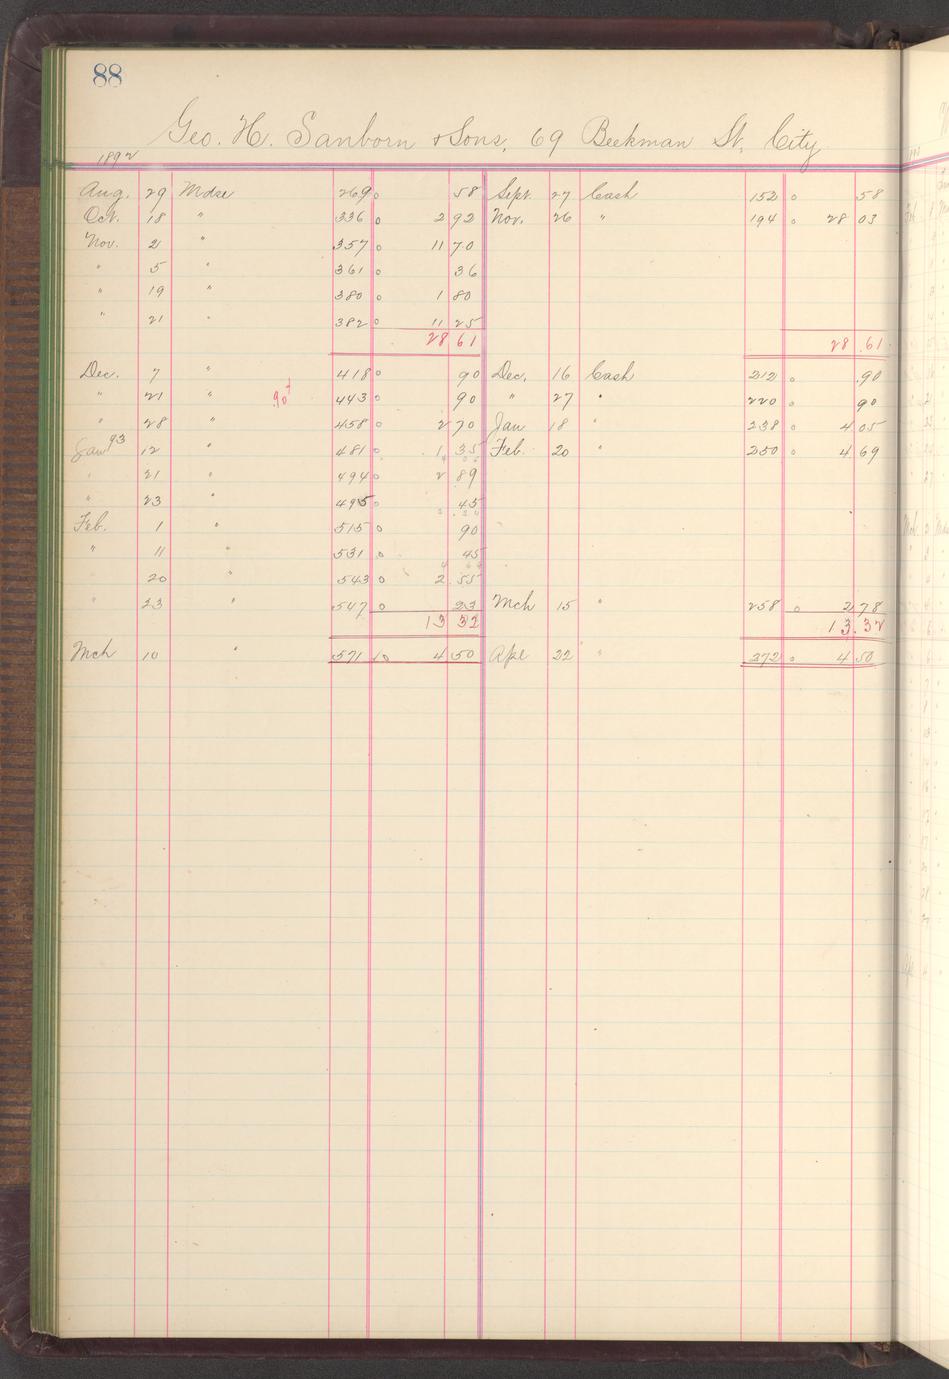 88
Geo. H. Sanborn & Sons, 69 Beekman St, City
1892
Aug. 29 Mdse 269 0 58 Sept. 27 Cash 152 0 58
Oct. 18 " 336 0 2 92 Nov. 26 " 194 0 28 03
Nov. 2 " 357 0 11 70
" 5 " 361 0 36
" 19 " 380 0 1 80
" 21 " 382 0 11 25
28 61 28.61
Dec. 7 " 418 0 90 Dec. 16 Cash 212 0 .90
" 21 " .90 443 0 90 " 27 " 220 0 90
" 28 " 458 0 2 70 Jan 18 " 238 0 4 05
Jan 93 12 " 481 0 1 35 Feb. 20 " 250 0 4 69
" 21 " 494 0 2 89
" 23 " 495 0 45
Feb. 1 " 515 0 90
" 11 " 531 0 45
20 " 543 0 2 55
" 23 " 547 0 23 Mch 15 " 258 0 2 78
13 32 13.32
Mch 10 " 571 10 4 50 Apl 22 " 272 0 4 50